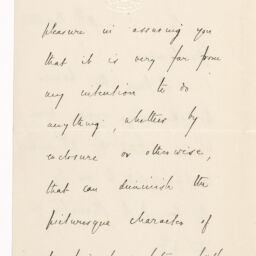 pleasure in assuring you
that it is very far from
my intention to do
anything, whether by
enclosure or otherwise,
that can diminish the
picturesque character of